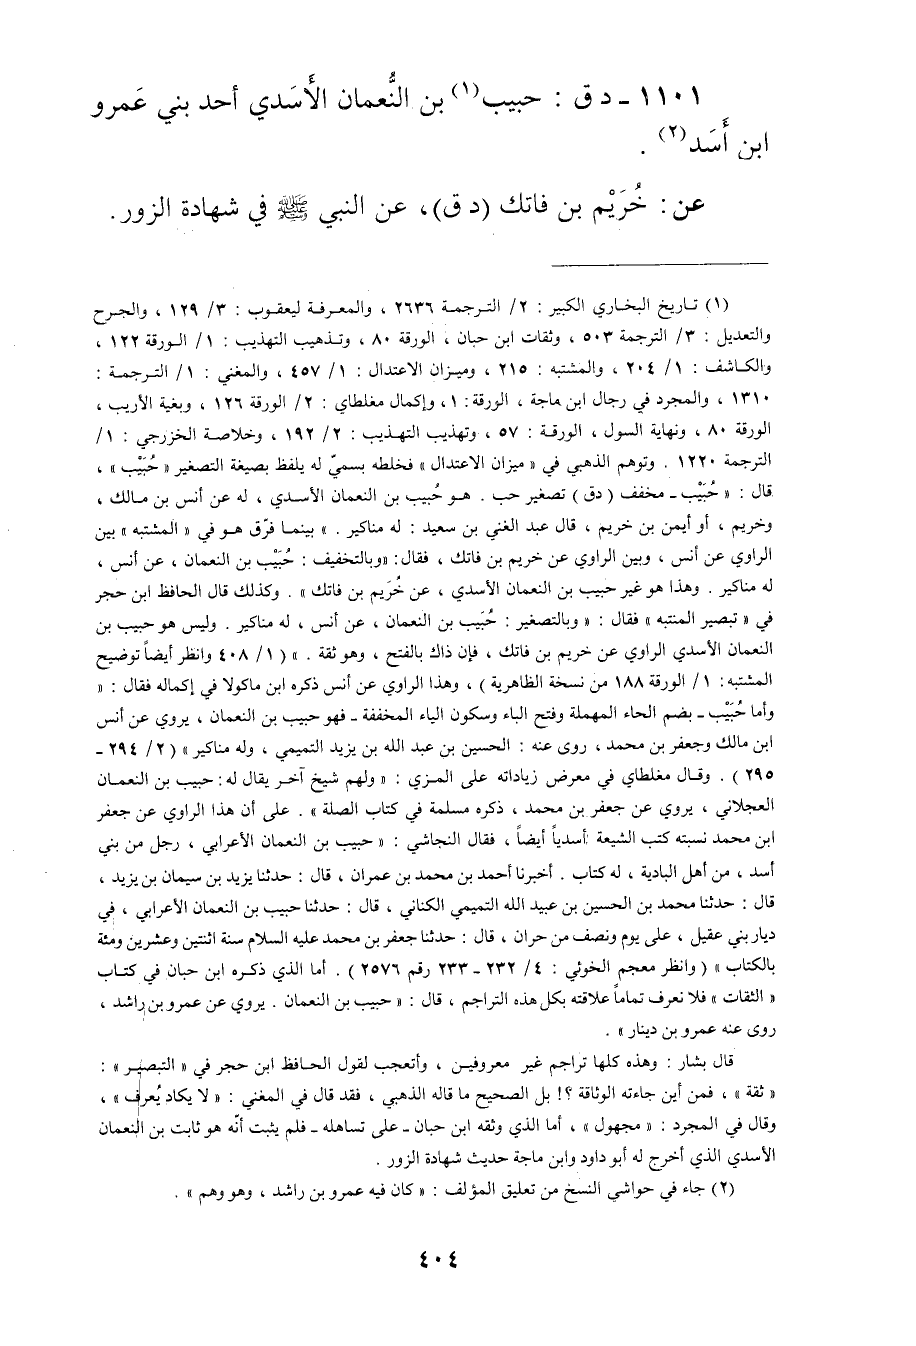 ١١٠١ ـ د ق : حبيب(١) بن النُّعمان الأَسَدي أحد بني عَمرو
ابن أَسَد(٢) .
عن: خُرَيْم بن فاتك (د ق)، عن النبي ﷺ في شهادة الزور.
(١) تاريخ البخاري الكبير : ٢/ الترجمة ٢٦٣٦ ، والمعرفة ليعقوب : ٣/ ١٢٩ ، والجرح
والتعديل : ٣/ الترجمة ٥٠٣ ، وثقات ابن حبان ، الورقة ٨٠ ، وتذهيب التهذيب : ١/ الورقة ١٢٢ ،
والكاشف : ١/ ٢٠٤ ، والمشتبه : ٢١٥ ، وميزان الاعتدال : ١/ ٤٥٧ ، والمغني : ١/ الترجمة :
١٣١٠ ، والمجرد في رجال ابن ماجة ، الورقة : ١، وإكمال مغلطاي : ٢/ الورقة ١٢٦ ، وبغية الأريب ،
الورقة ٨٠ ، ونهاية السول ، الورقة : ٥٧ ، وتهذيب التهذيب : ٢/ ١٩٢ ، وخلاصة الخزرجي : ١/
الترجمة ١٢٢٠ . وتوهم الذهبي في « ميزان الاعتدال » فخلطه بسميّ له يلفظ بصيغة التصغير « حُبَيْب » ،
قال : « حُبَيْب ـ مخفف (دق) تصغير حب . هو حُبيب بن النعمان الأسدي ، له عن أنس بن مالك ،
وخريم ، أو أيمن بن خريم ، قال عبد الغني بن سعيد : له مناكير . » بينما فرّق هو في « المشتبه » بين
الراوي عن أنس ، وبين الراوي عن خريم بن فاتك ، فقال: «وبالتخفيف : حُبَيْب بن النعمان ، عن أنس ،
له مناكير . وهذا هو غير حبيب بن النعمان الأسدي ، عن خُرَيم بن فاتك » . وكذلك قال الحافظ ابن حجر
في « تبصير المنتبه » فقال : « وبالتصغير : حُبَيب بن النعمان ، عن أنس ، له مناكير . وليس هو حبيب بن
النعمان الأسدي الراوي عن خريم بن فاتك ، فإن ذاك بالفتح ، وهو ثقة . » ( ١/ ٤٠٨ وانظر أيضاً توضيح
المشتبه: ١/ الورقة ١٨٨ من نسخة الظاهرية ) ، وهذا الراوي عن أنس ذكره ابن ماكولا في إكماله فقال : «
وأما حُبَيْب ـ بضم الحاء المهملة وفتح الباء وسكون الياء المخففة ـ فهو حبيب بن النعمان ، يروي عن أنس
ابن مالك وجعفر بن محمد ، روى عنه : الحسين بن عبد الله بن يزيد التميمي ، وله مناكير » ( ٢/ ٢٩٤ ـ
٢٩٥ ) . وقال مغلطاي في معرض زياداته على المزي : « ولهم شيخ آخر يقال له: حبيب بن النعمان
العجلاني ، يروي عن جعفر بن محمد ، ذكره مسلمة في كتاب الصلة » . على أن هذا الراوي عن جعفر
ابن محمد نسبته كتب الشيعة أسدياً أيضاً ، فقال النجاشي : « حبيب بن النعمان الأعرابي ، رجل من بني
أسد ، من أهل البادية ، له كتاب . أخبرنا أحمد بن محمد بن عمران ، قال : حدثنا يزيد بن سيمان بن يزيد ،
قال : حدثنا محمد بن الحسين بن عبيد الله التميمي الكناني ، قال : حدثنا حبيب بن النعمان الأعرابي ، في
ديار بني عقيل ، على يوم ونصف من حران ، قال : حدثنا جعفر بن محمد عليه السلام سنة اثنتين وعشرين ومئة
بالكتاب » ( وانظر معجم الخوئي : ٤/ ٢٣٢ ـ ٢٣٣ رقم ٢٥٧٦ ) . أما الذي ذكره ابن حبان في كتاب
« الثقات » فلا نعرف تماماً علاقته بكل هذه التراجم ، قال : « حبيب بن النعمان . يروي عن عمرو بن راشد ،
روى عنه عمرو بن دينار » .
قال بشار : وهذه كلها تراجم غير معروفين ، وأتعجب لقول الحافظ ابن حجر في « التبصير » :
« ثقة » ، فمن أين جاءته الوثاقة ؟! بل الصحيح ما قاله الذهبي ، فقد قال في المغني : « لا يكاد يُعرف » ،
وقال في المجرد : « مجهول » ، أما الذي وثقه ابن حبان ـ على تساهله ـ فلم يثبت أنّه هو ثابت بن النعمان
الأسدي الذي أخرج له أبو داود وابن ماجة حديث شهادة الزور .
(٢) جاء في حواشي النسخ من تعليق المؤلف : « كان فيه عمرو بن راشد ، وهو وهم » .
٤٠٤